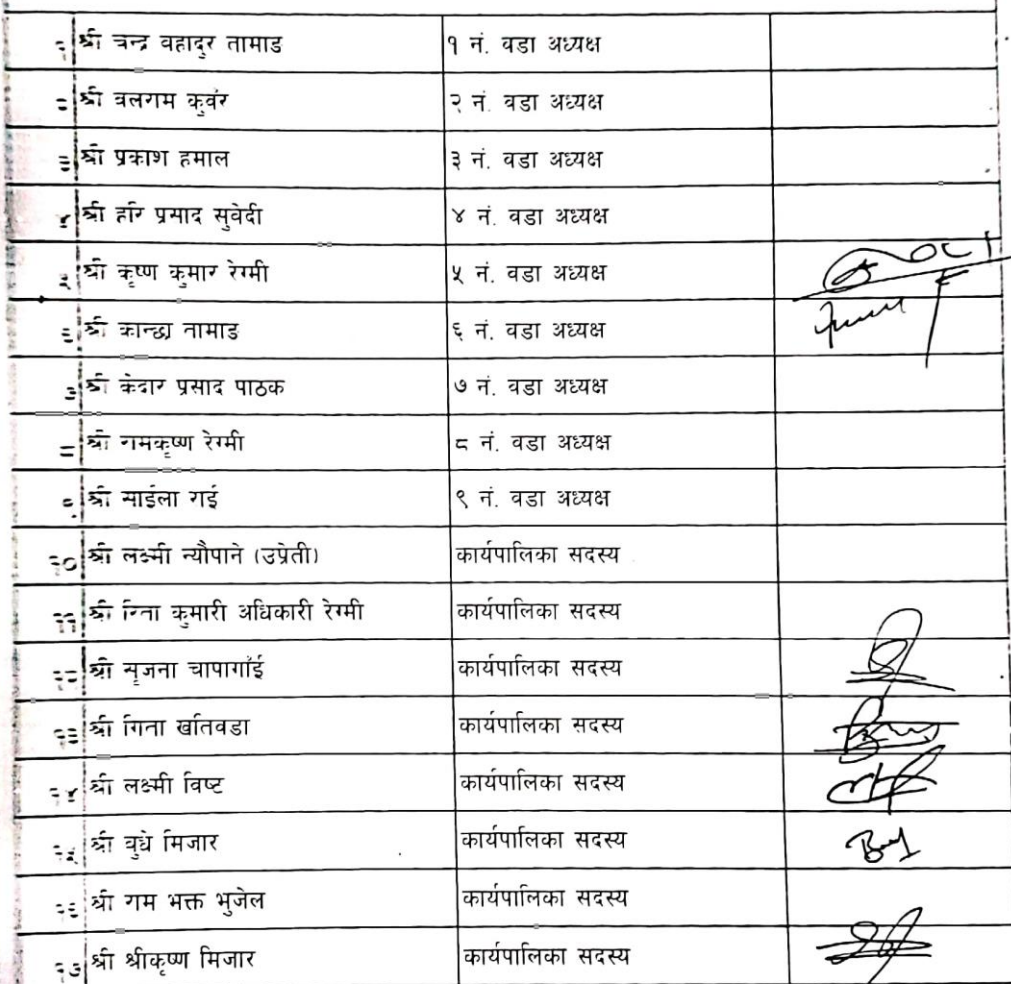 १ श्री चन्द्र वहादुर तामाङ १ नं. वडा अध्यक्ष
२ श्री वलराम कुवंर २ नं. वडा अध्यक्ष
३ श्री प्रकाश हमाल ३ नं. वडा अध्यक्ष
४ श्री हरि प्रसाद सुवेदी ४ नं. वडा अध्यक्ष
५ श्री कृष्ण कुमार रेग्मी ५ नं. वडा अध्यक्ष
६ श्री कान्छा तामाङ ६ नं. वडा अध्यक्ष
७ श्री केदार प्रसाद पाठक ७ नं. वडा अध्यक्ष
८ श्री रामकृष्ण रेग्मी ८ नं. वडा अध्यक्ष
९ श्री साईला राई ९ नं. वडा अध्यक्ष
१० श्री लक्ष्मी न्यौपाने (उप्रेती) कार्यपालिका सदस्य
११ श्री रिता कुमारी अधिकारी रेग्मी कार्यपालिका सदस्य
१२ श्री सृजना चापागाँई कार्यपालिका सदस्य
१३ श्री गिता खतिवडा कार्यपालिका सदस्य
१४ श्री लक्ष्मी विष्ट कार्यपालिका सदस्य
१५ श्री वुधे मिजार कार्यपालिका सदस्य
१६ श्री राम भक्त भुजेल कार्यपालिका सदस्य
१७ श्री श्रीकृष्ण मिजार कार्यपालिका सदस्य